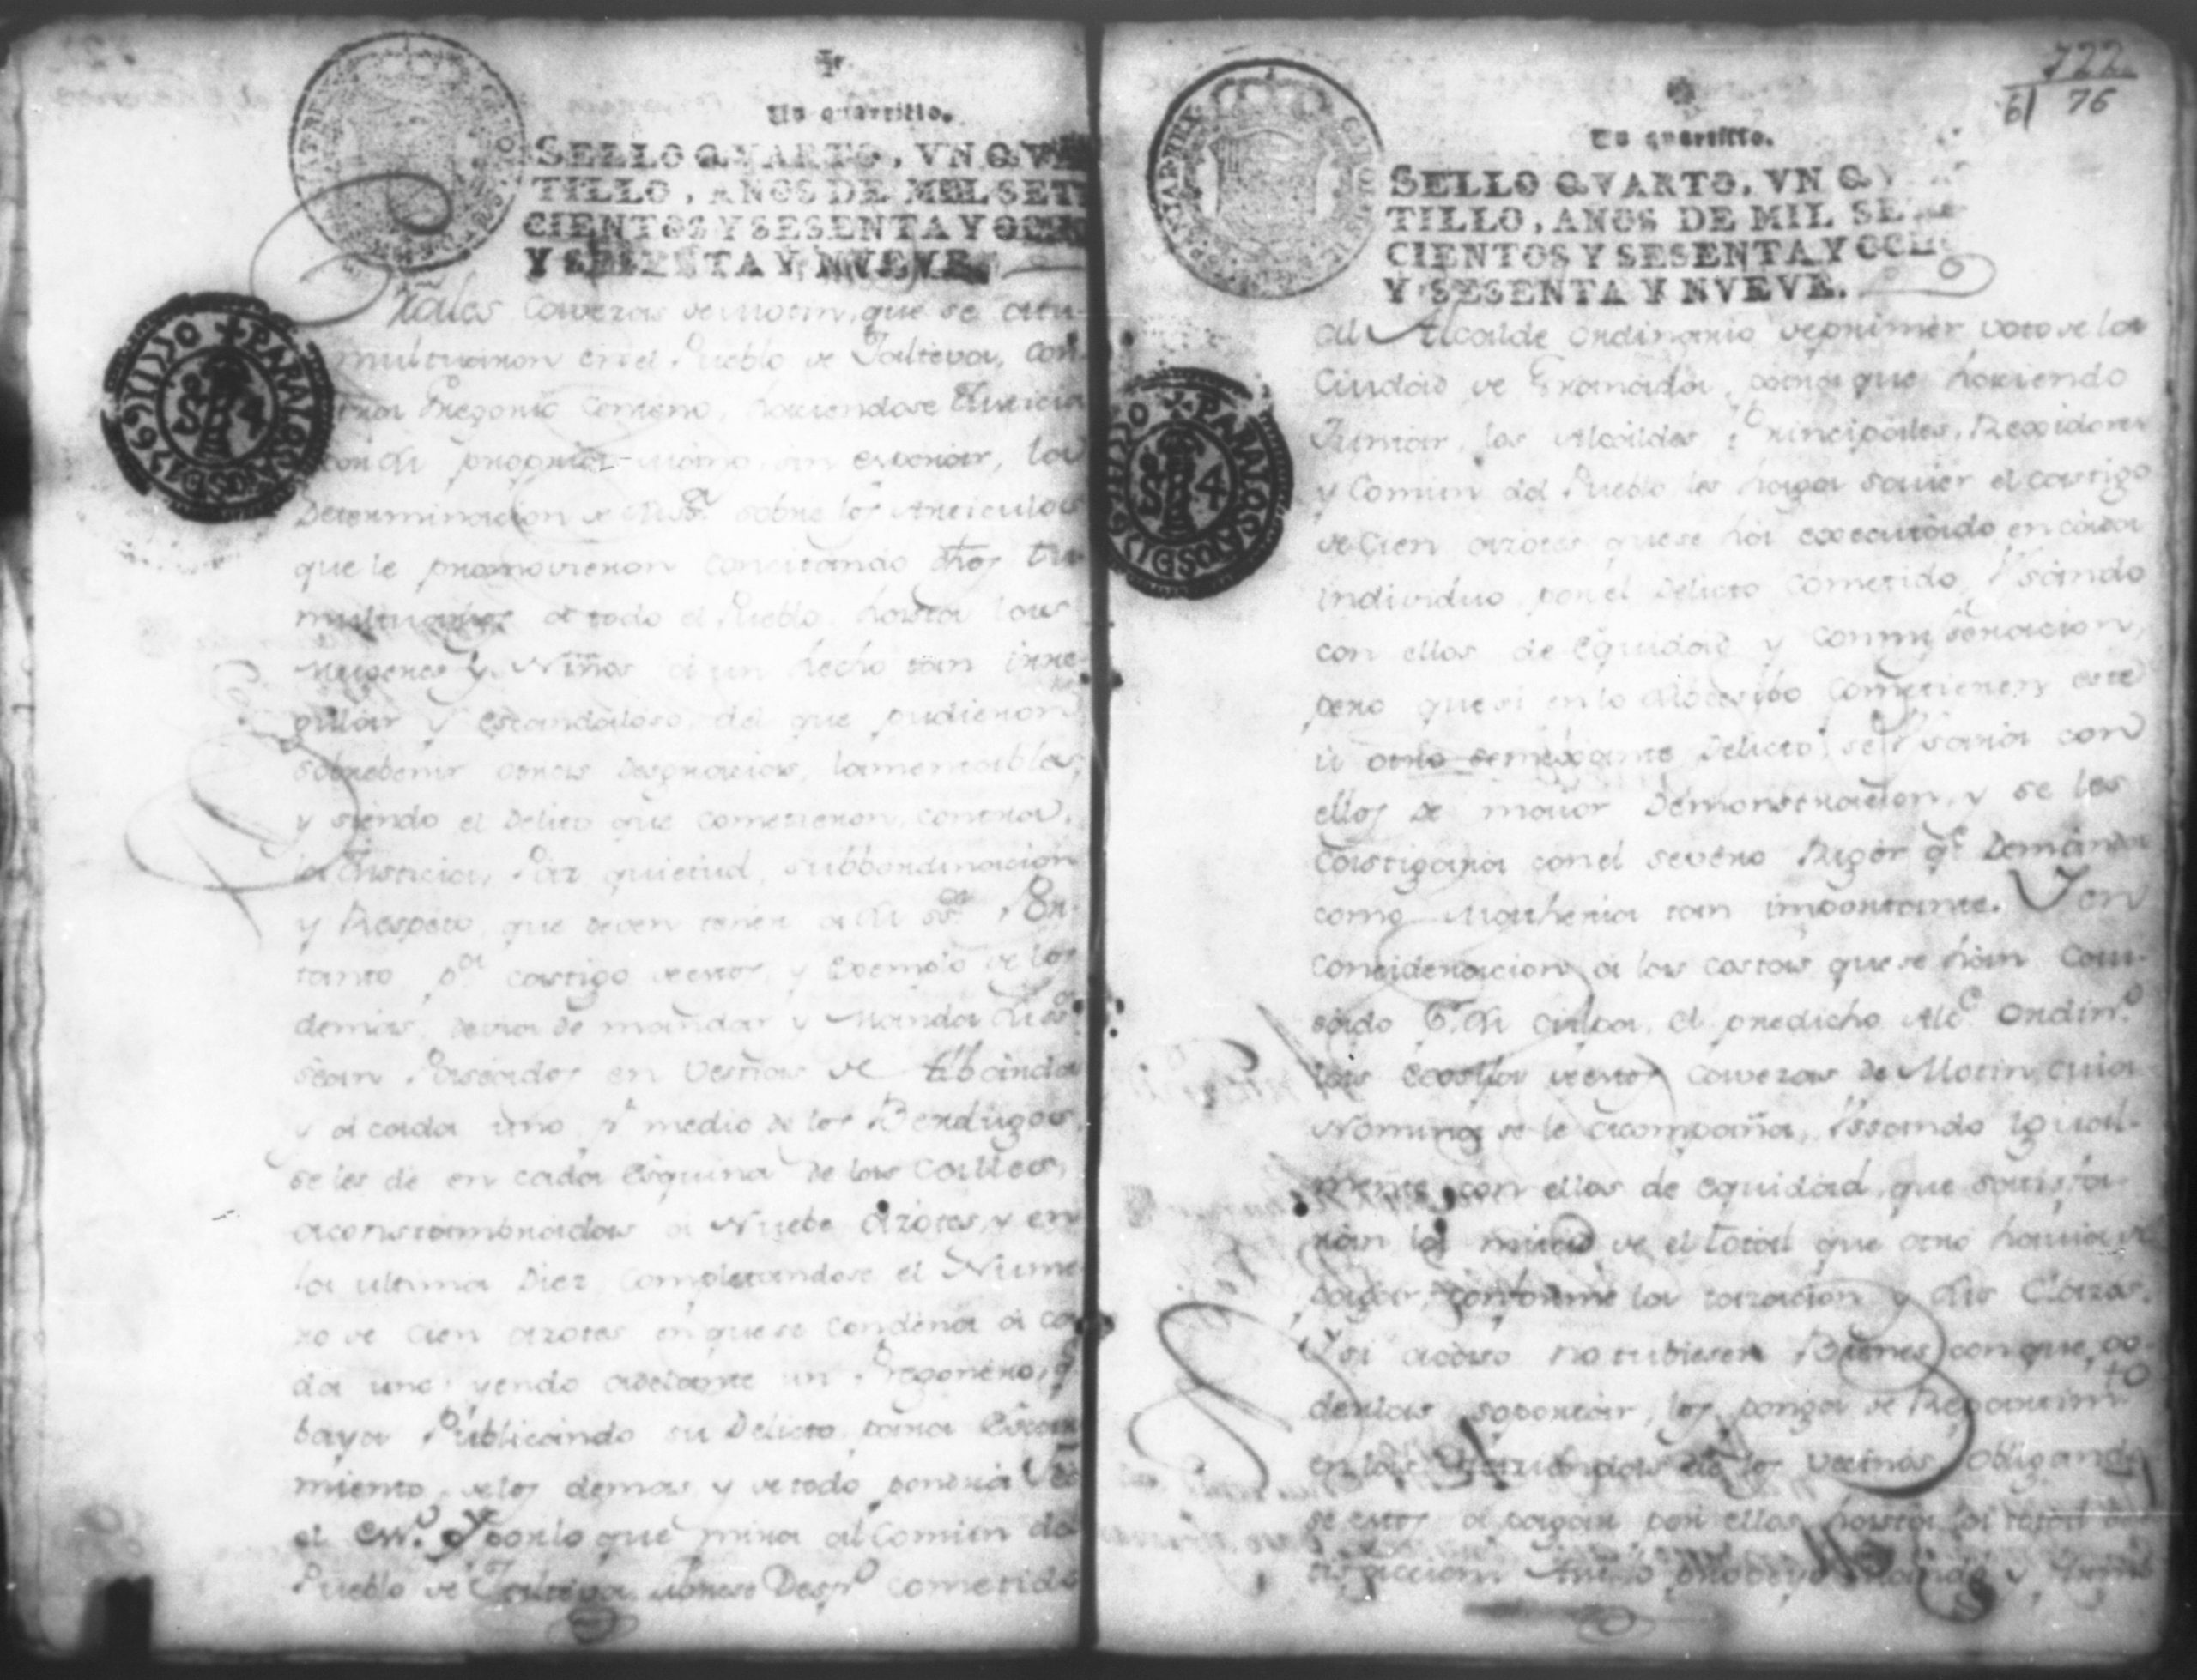 Un quartillo.
SELLO QVARTO, VN QVAR
TILLO, AÑOS DE MIL SETE
CIENTOS Y SESENTA Y OCHO
Y SESENTA Y NVEVE.
PARA LOS AÑOS DE 1769 OCCIIII
S 4
Cavezas de Motin, que se atu-
multuaron en el Pueblo de Jalteva, con-
tra Gregorio Centeno, haciendose Justicia
con su propria mano, sin esperar, la
Determinacion de su Sa. sobre los Articulos
que le promovieron concitando dhos tu
multuarios a todo el Pueblo hasta las
Mugeres y Niños a un hecho tan irre-
gular y escandaloso, del que pudieron
sobrebenir otras desgracias, lamentables,
y siendo el Delito que cometieron, contra
la Justicia, Paz quietud, subbordinacion
y Respeto, que deven tener a su Sa. Por
tanto pa. castigo de estos, y Exemplo de los
demas, devia de mandar y Manda
sean Paseados en vestias de Albarda
y a cada uno, pr. medio de los Berdugos
se les dé en cada Esquina de las Calles,
aconstumbradas a Nuebe azotes, y en
la ultima Diez completandose el Nume
ro de Cien azotes en que se condena a ca
da uno, yendo adelante un Pregonero, q
baya Publicando su Delicto para Escar
miento, de los demas, y de todo pondrá
el Esno. Y por lo que mira al Comun del
Pueblo de Jalteva librese Despo. cometido
722
61 76
Un quartillo.
SELLO QVARTO, VN QV
TILLO, AÑOS DE MIL SETE
CIENTOS Y SESENTA Y OCHO
Y SESENTA Y NVEVE.
PARA LOS AÑOS DE
S 4
al Alcalde ordinario de primer voto de la
Ciudad de Granada, para que haciendo
Juntar, los Alcaldes, Principales, Regidores
y Comun del Pueblo, les haga saver el castigo
de Cien azotes que se ha executado en cada
individuo por el Delicto cometido, Usando
con ellos de Equidad y Commiseracion,
pero que si en lo subcesibo cometieren este
u otro semexante Delicto, se Usaria con
ellos de mayor Demonstracion, y se les
Castigaria con el severo Rigor qe. Demanda
como Matheria tan importante. Y en
concideracion a las costas que se han Cau-
sado Pr. su culpa, el predicho Alce. Ordino.
las de estos Cavezas de Motin, cuia
Nomina se le acompaña, Ussando igual-
mente con ellos de equidad, que satisfa-
ran la mitad de el total que otro havia de
pagar, conforme la tazacion y sus Clazas.
Y si acaso no tubiesen Bienes con que po-
derlas soportar, los ponga de Repartimto.
en las de los vecinos obligando
se estos a pagar por ellos hasta la total sa
tisfaccion. Assi lo proveyo Mando y firmo